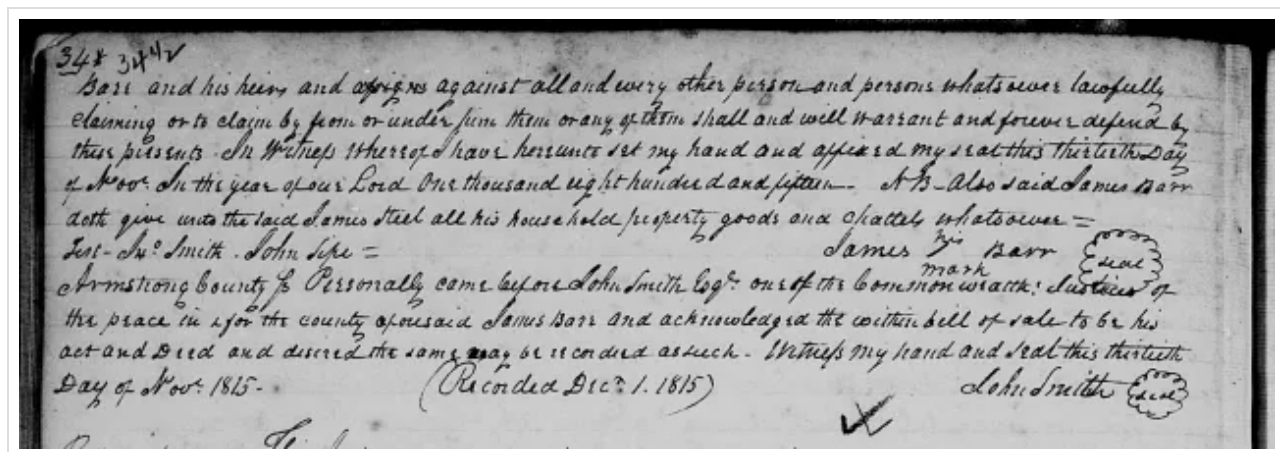 34 & 34 1/2
Barr and his heirs and assigns against all and every other person and persons whatsoever lawfully
claiming or to claim by from or under him them or any of them shall and will warrant and forever defend by
these presents. In Witness whereof I have hereunto set my hand and affixed my seal this thirtieth Day
of Novr. In the year of our Lord One thousand eight hundred and fifteen - N B - Also said James Barr
doth give unto the said James Steel all his household property goods and chattels whatsoever =
Test - Jno. Smith - John Sipe = James his Barr seal
mark
Armstrong County Ss Personally came before John Smith Esqr. one of the Commonwealth: Justices of
the peace in & for the county aforesaid James Barr and acknowledged the within bill of sale to be his
act and Deed and desired the same may be recorded as such - Witness my hand and seal this thirtieth
Day of Novr. 1815 - (Recorded Decr. 1. 1815) John Smith seal